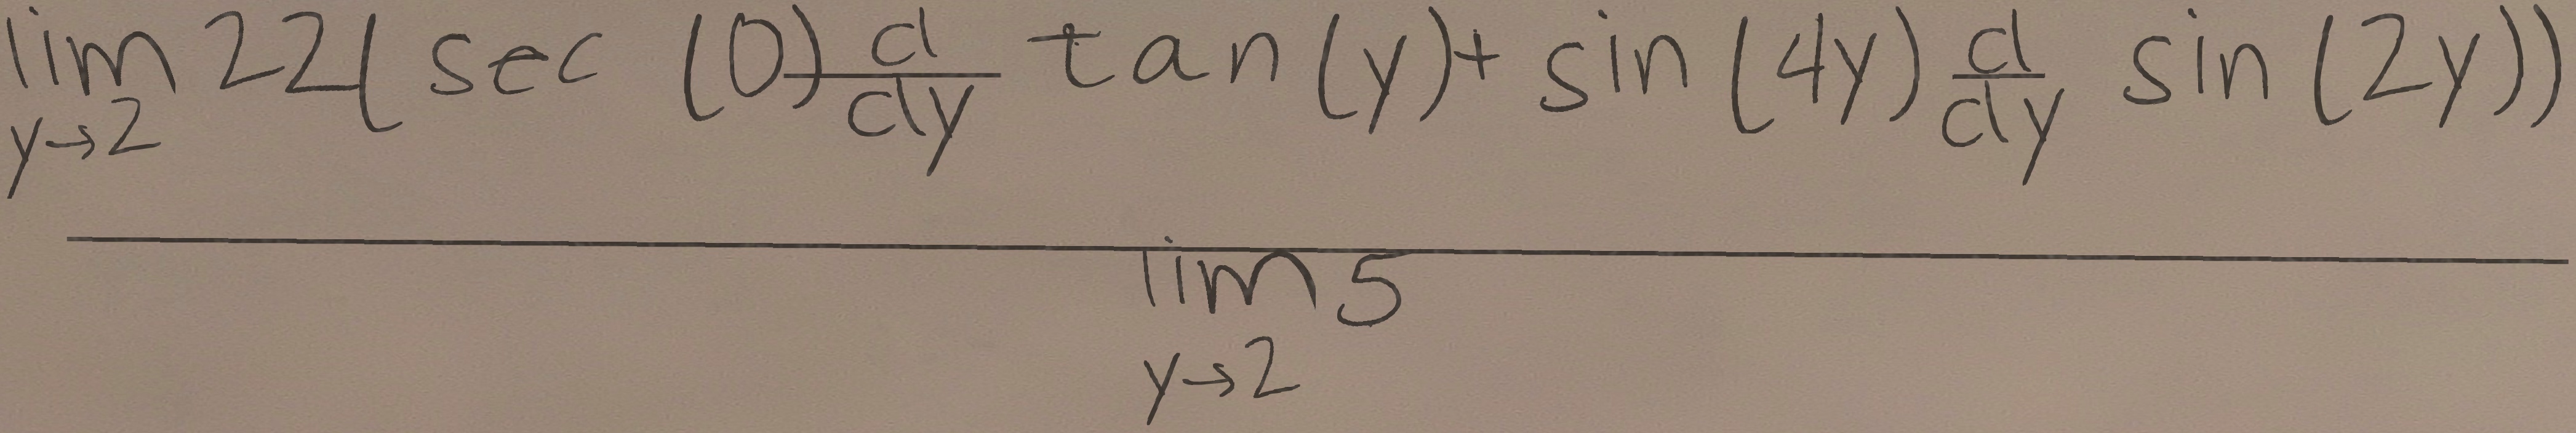 \frac{\lim_{y \to 2} 22 ( \sec (0) \frac{d}{dy} \tan (y) + \sin (4y) \frac{d}{dy} \sin (2y))}{\lim_{y \to 2} 5}